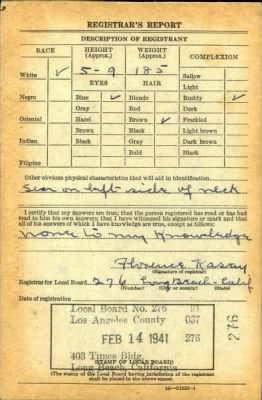 REGISTRAR'S REPORT
DESCRIPTION OF REGISTRANT
RACE HEIGHT (Approx.) WEIGHT (Approx.) COMPLEXION
White ✓ 5-9 185 Sallow
EYES HAIR Light
Negro Blue ✓ Blonde Ruddy ✓
Gray Red Dark
Oriental Hazel Brown ✓ Freckled
Brown Black Light brown
Indian Black Gray Dark brown
Bald Black
Filipino
Other obvious physical characteristics that will aid in identification
Scar on left side of neck
I certify that my answers are true; that the person registered has read or has had
read to him his own answers; that I have witnessed his signature or mark and that
all of his answers of which I have knowledge are true, except as follows:
None to my knowledge
Florence
(Signature of registrar)
Registrar for Local Board 276 Long Beach - Calif
(Number) (City or county) (State)
Date of registration
Local Board No. 276 91
Los Angeles County 037
FEB 14 1941 276
403 Times Bldg.
Long Beach, California
276
(STAMP OF LOCAL BOARD)
(The stamp of the Local Board having jurisdiction of the registrant
shall be placed in the above space)